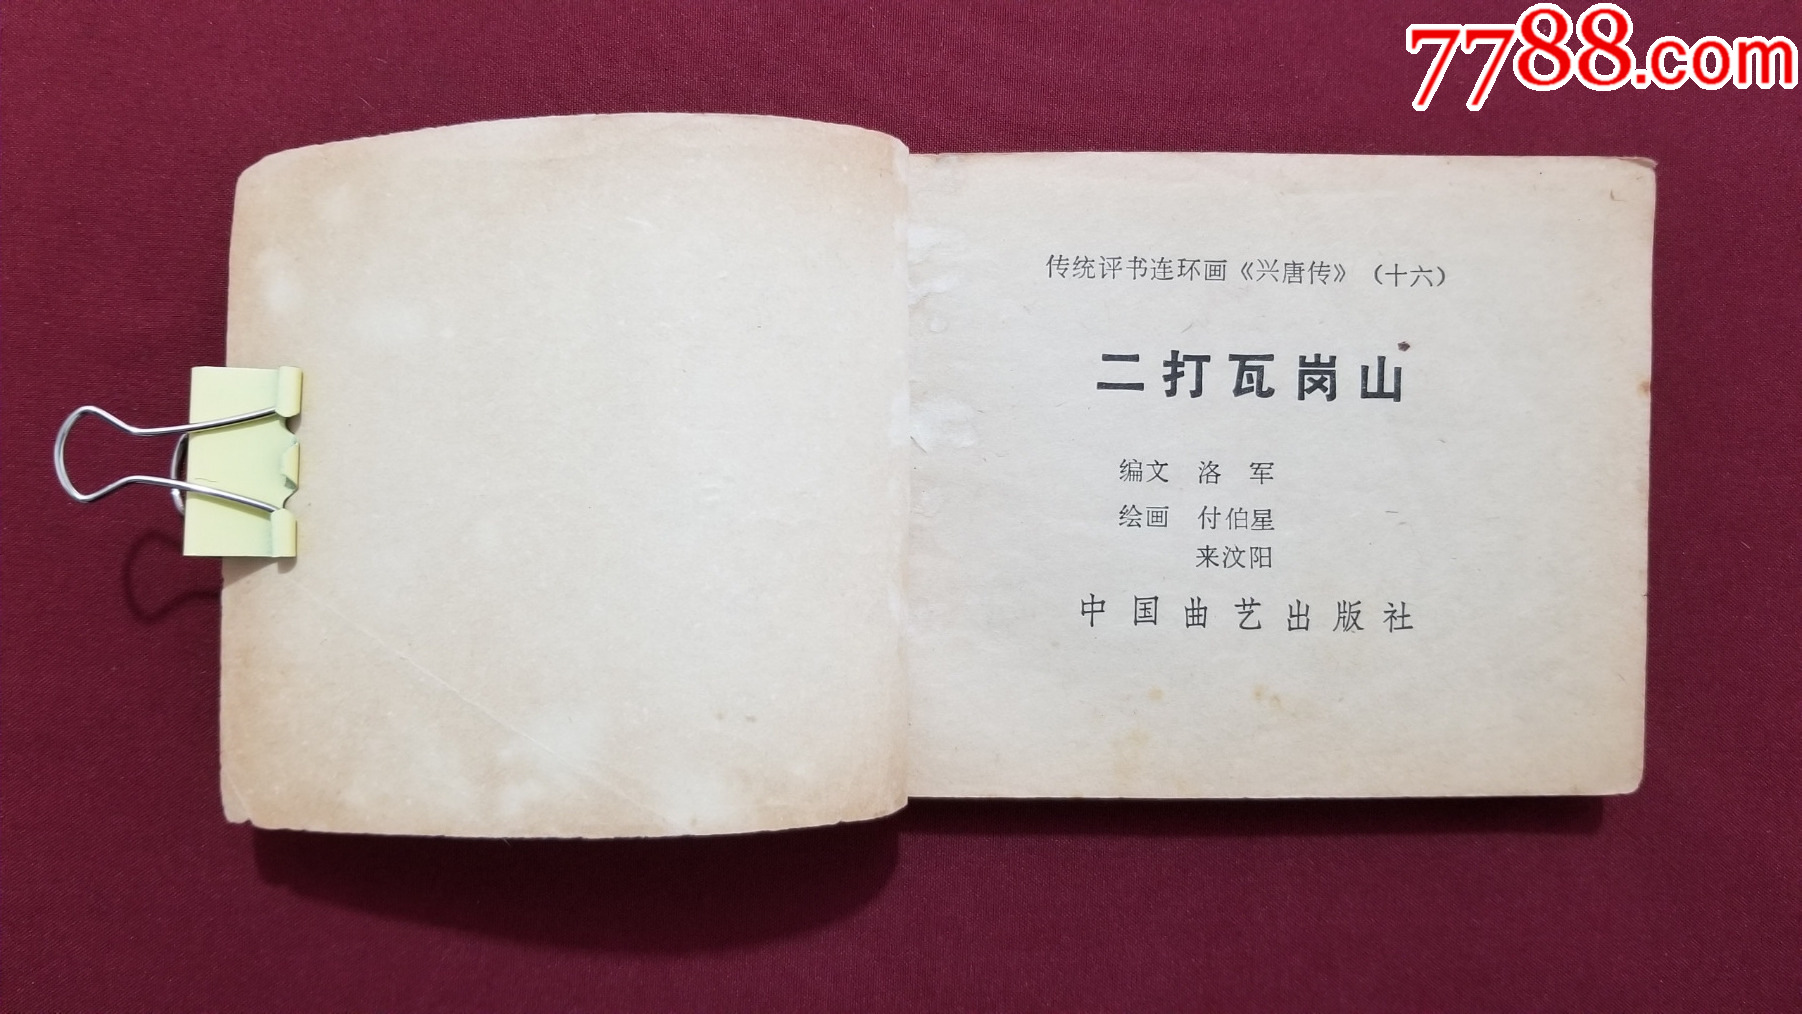 7788.com
传统评书连环画《兴唐传》（十六）
二打瓦岗山
编文 洛 军
绘画 付伯星
来汶阳
中国曲艺出版社